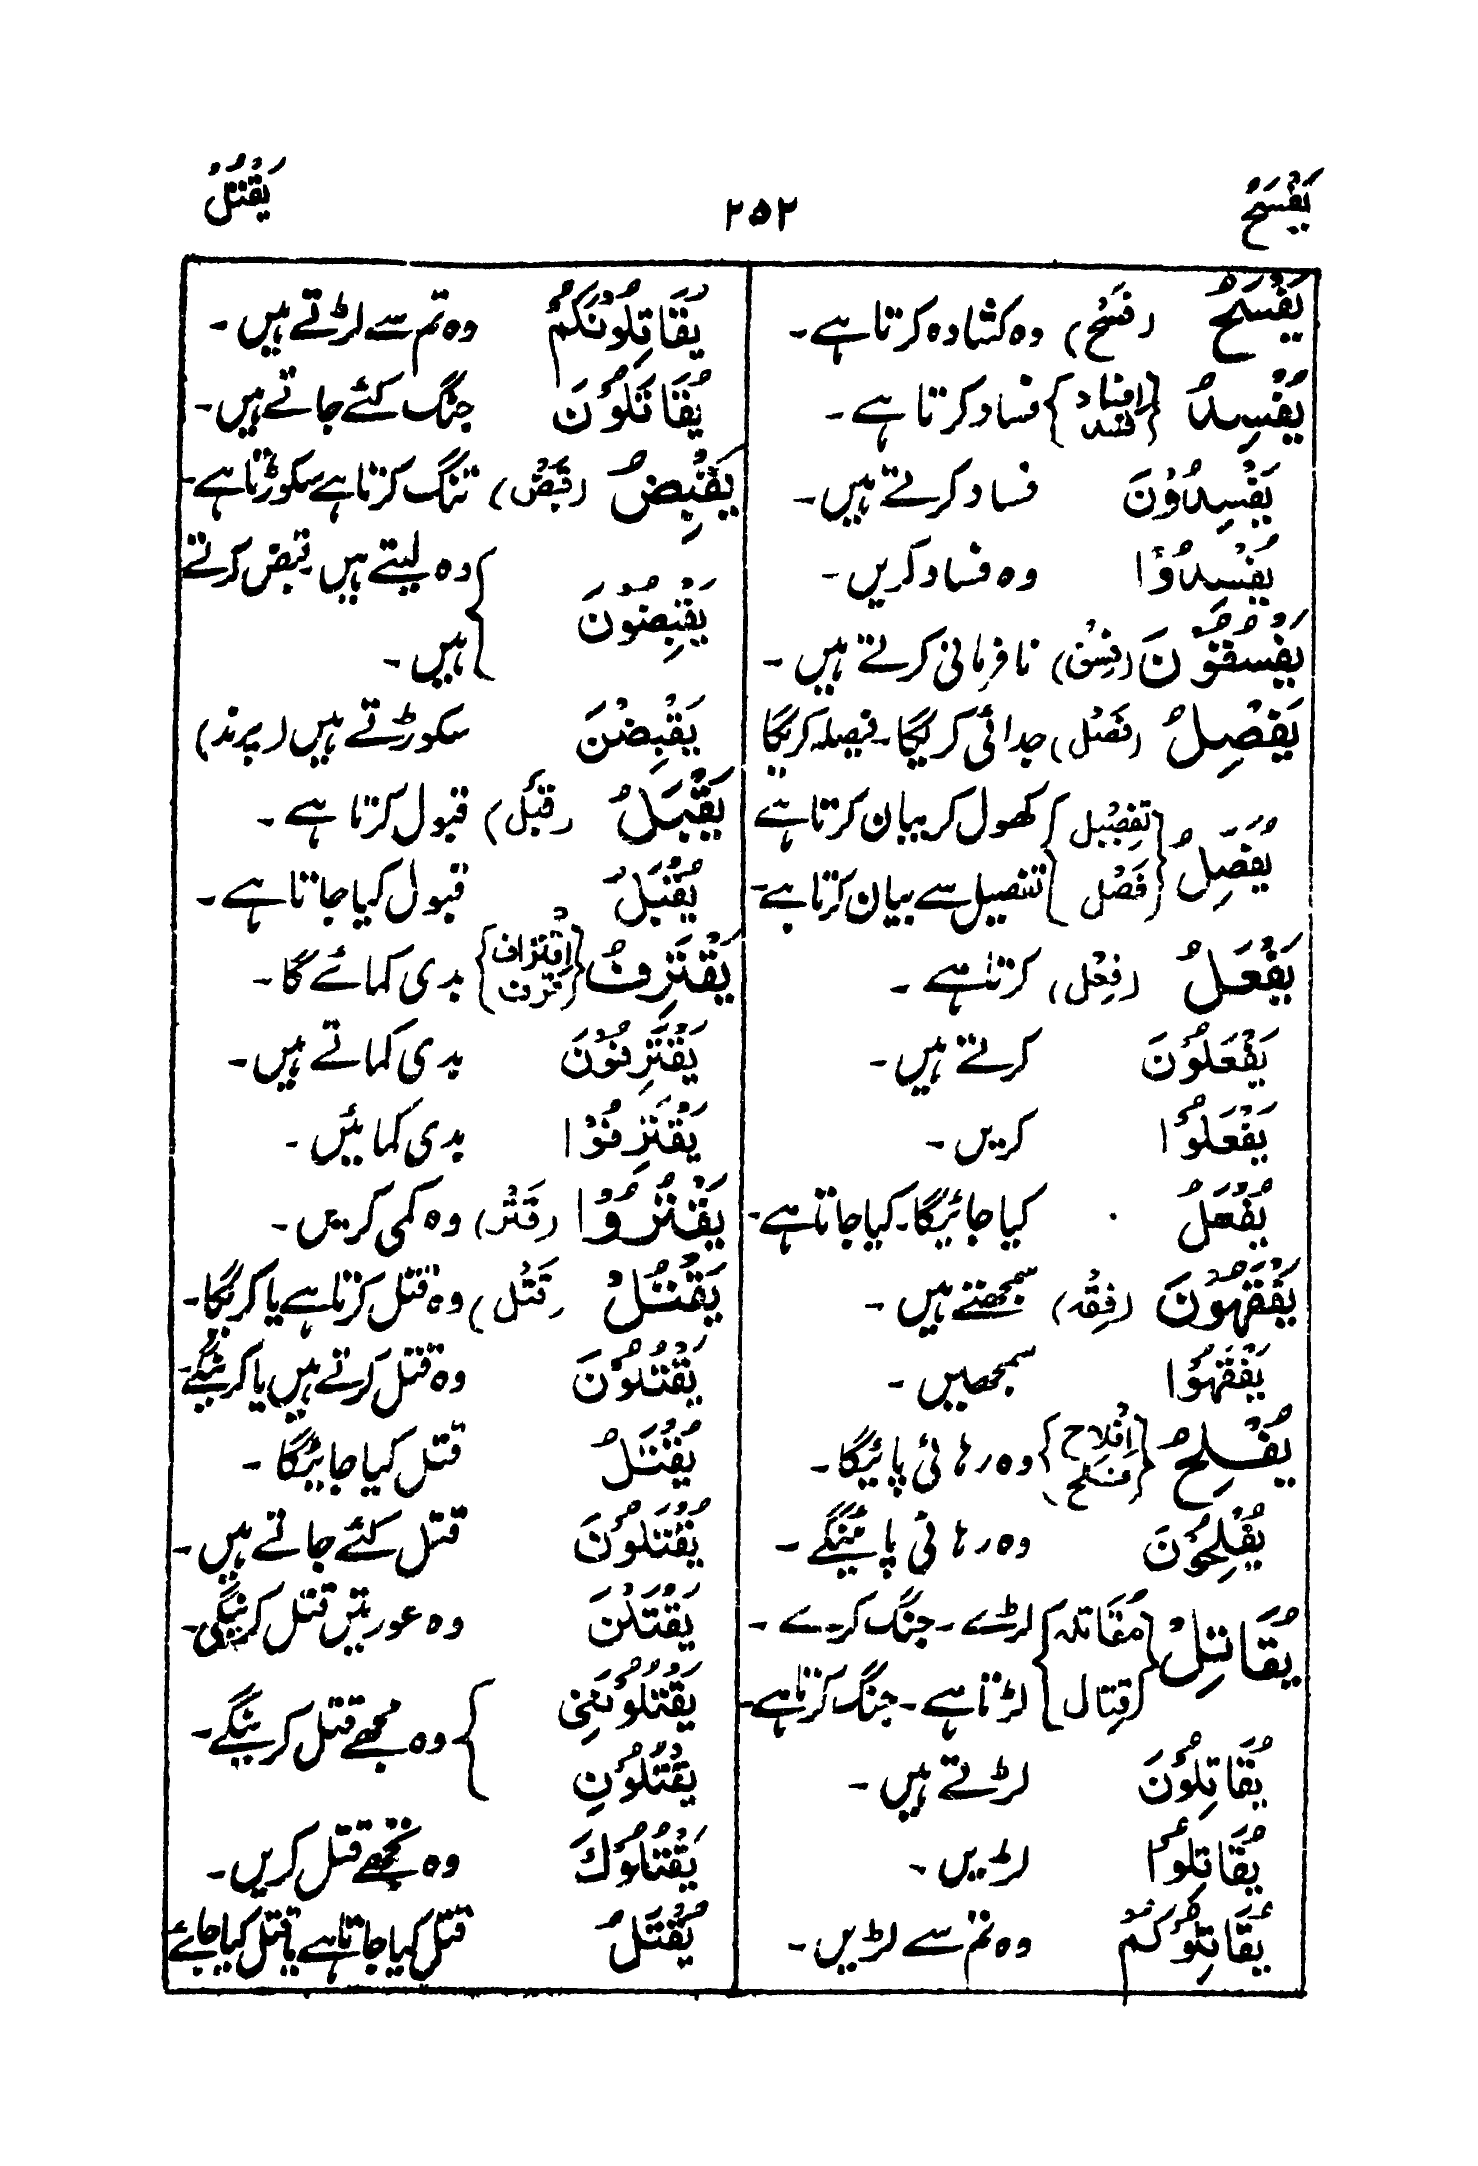 يَفْسَحُ ۲۵۲ يُقْتَلُ
يَفْسَحُ (فَسْحٌ) وہ کشادہ کرتا ہے۔
يُفْسِدُ {اِفْسَاد فسد} فساد کرتا ہے۔
يُفْسِدُوْنَ فساد کرتے ہیں۔
يُفْسِدُوْا وہ فساد کریں۔
يَفْسُقُوْنَ (فِسْق) نافرمانی کرتے ہیں۔
يَفْصِلُ (فَصْل) جدائی کریگا۔ فیصلہ کریگا
يُفَصِّلُ {تَفْصِيْل} کھول کر بیان کرتا ہے
{فَصْل} تفصیل سے بیان کرتا ہے۔
يَفْعَلُ (فِعْل) کرتا ہے۔
يَفْعَلُوْنَ کرتے ہیں۔
يَفْعَلُوْا کریں۔
يُفْعَلُ کیا جائیگا۔ کیا جاتا ہے۔
يَفْقَهُوْنَ (فِقْہ) سمجھتے ہیں۔
يَفْقَهُوْا سمجھیں۔
يُفْلِحُ {اِفْلَاح فلح} وہ رہائی پائیگا۔
يُفْلِحُوْنَ وہ رہائی پائینگے۔
يُقَاتِلُ {مُقَاتلہ} لڑے۔ جنگ کرے۔
{قِتَال} لڑتا ہے۔ جنگ کرتا ہے۔
يُقَاتِلُوْنَ لڑتے ہیں۔
يُقَاتِلُوْا لڑیں۔
يُقَاتِلُوْكُمْ وہ تم سے لڑیں۔
يُقَاتِلُوْنَكُمْ وہ تم سے لڑتے ہیں۔
يُقَاتَلُوْنَ جنگ کئے جاتے ہیں۔
يَقْبِضُ (قَبْض) تنگ کرتا ہے سکوڑتا ہے۔
يَقْبِضُوْنَ {وہ لیتے ہیں قبض کرتے
ہیں۔
يَقْبِضْنَ سکوڑتے ہیں (پرند)
يَقْبَلُ (قَبْل) قبول کرتا ہے۔
يُقْبَلُ قبول کیا جاتا ہے۔
يَقْتَرِفُ {اِقْتراف قرف} بدی کمائے گا۔
يَقْتَرِفُوْنَ بدی کماتے ہیں۔
يَقْتَرِفُوْا بدی کمائیں۔
يَقْتُرُوْا (قَتْر) وہ کمی کریں۔
يَقْتُلُ (قَتْل) وہ قتل کرتا ہے یا کریگا۔
يَقْتُلُوْنَ وہ قتل کرتے ہیں یا کرینگے
يُقْتَلُ قتل کیا جائیگا۔
يُقْتَلُوْنَ قتل کئے جاتے ہیں۔
يَقْتُلْنَ وہ عورتیں قتل کرینگی۔
يَقْتُلُوْنَنِیْ
يَقْتُلُوْنِ } وہ مجھے قتل کرینگے۔
يَقْتُلُوْكَ وہ تجھے قتل کریں۔
يُقْتَلُ قتل کیا جاتا ہے یا قتل کیا جائے